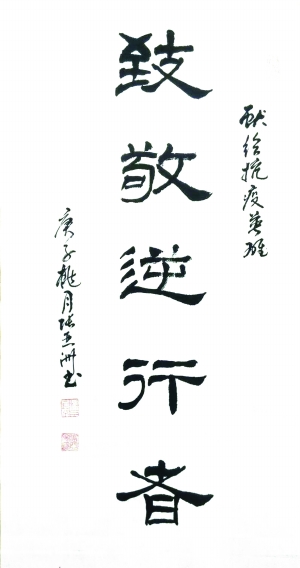 献给抗疫英雄
致敬逆行者
庚子桃月张亚洲书